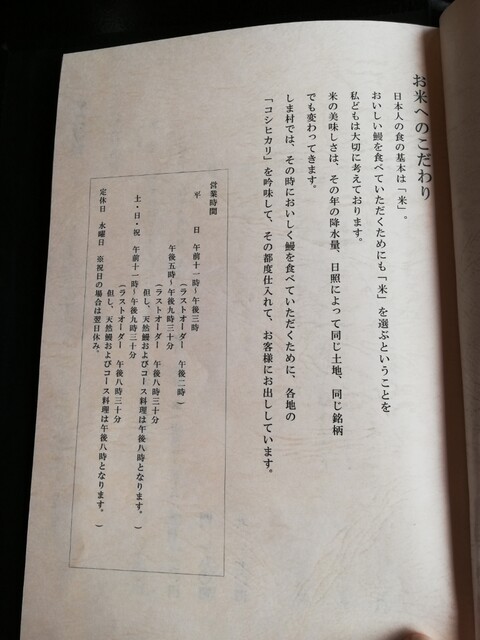 お米へのこだわり
日本人の食の基本は「米」。
おいしい鰻を食べていただくためにも「米」を選ぶということを
私どもは大切に考えております。
米の美味しさは、その年の降水量、日照によって同じ土地、同じ銘柄
でも変わってきます。
しま村では、その時においしく鰻を食べていただくために、各地の
「コシヒカリ」を吟味して、その都度仕入れて、お客様にお出ししています。
営業時間
平　日　午前十一時～午後三時
（ラストオーダー　午後二時）
午後五時～午後九時三十分
（ラストオーダー　午後八時三十分
但し、天然鰻およびコース料理は午後八時となります。）
土・日・祝　午前十一時～午後九時三十分
（ラストオーダー　午後八時三十分
但し、天然鰻およびコース料理は午後八時となります。）
定休日　水曜日　※祝日の場合は翌日休み。